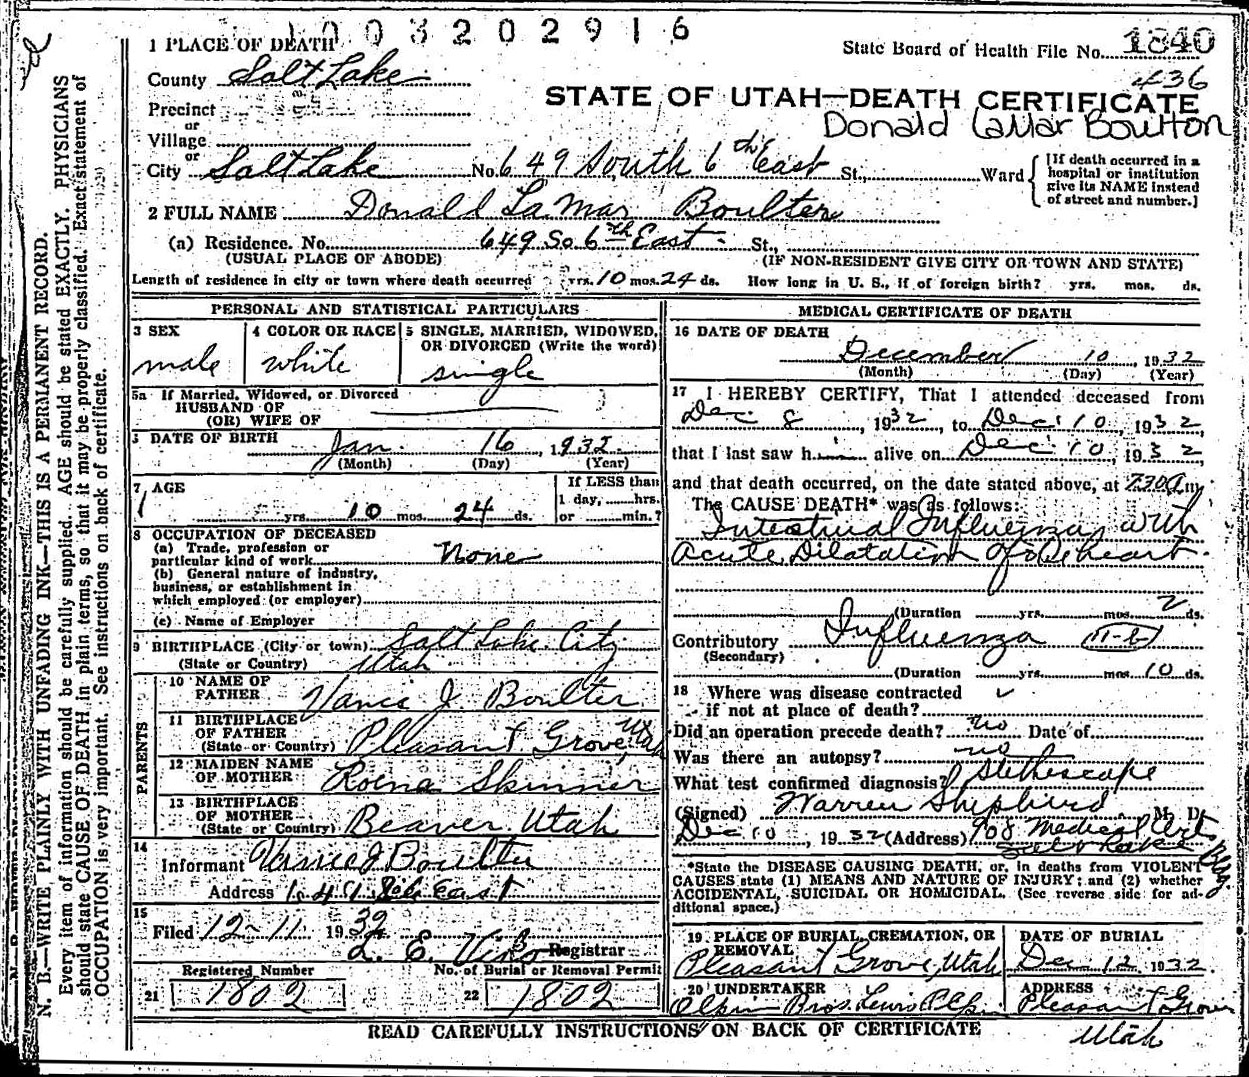 1003202916
1 PLACE OF DEATH
State Board of Health File No. 1840
County Salt Lake
436
STATE OF UTAH—DEATH CERTIFICATE
Precinct
Donald LaMar Boulton
or
Village
or
City Salt Lake No. 649 South 6th East St., Ward
[If death occurred in a
hospital or institution
give its NAME instead
of street and number.]
2 FULL NAME Donald La Mar Boulter
(a) Residence. No. 649 So 6th East St.,
(USUAL PLACE OF ABODE) (IF NON-RESIDENT GIVE CITY OR TOWN AND STATE)
Length of residence in city or town where death occurred yrs. 10 mos. 24 ds. How long in U. S., if of foreign birth? yrs. mos. ds.
PERSONAL AND STATISTICAL PARTICULARS
3 SEX 4 COLOR OR RACE 5 SINGLE, MARRIED, WIDOWED,
OR DIVORCED (Write the word)
male white single
5a If Married, Widowed, or Divorced
HUSBAND OF
(OR) WIFE OF
DATE OF BIRTH
Jan. 16, 1932
(Month) (Day) (Year)
7 AGE If LESS than
1 day, hrs.
yrs. 10 mos. 24 ds. or min.?
8 OCCUPATION OF DECEASED
(a) Trade, profession or
particular kind of work None
(b) General nature of industry,
business, or establishment in
which employed (or employer)
(c) Name of Employer
9 BIRTHPLACE (City or town) Salt Lake City
(State or Country) Utah
PARENTS
10 NAME OF
FATHER Vance J Boulter
11 BIRTHPLACE
OF FATHER
(State or Country) Pleasant Grove, Utah
12 MAIDEN NAME
OF MOTHER Roena Skinner
13 BIRTHPLACE
OF MOTHER
(State or Country) Beaver Utah
14
Informant Vance J Boulter
Address East
15
Filed 12-11 1932
L. E. Registrar
Registered Number No. of Burial or Removal Permit
21 1802 22 1802
MEDICAL CERTIFICATE OF DEATH
16 DATE OF DEATH
December 10, 1932
(Month) (Day) (Year)
17 I HEREBY CERTIFY, That I attended deceased from
Dec. 8, 1932, to Dec. 10, 1932,
that I last saw him alive on Dec. 10, 1932,
and that death occurred, on the date stated above, at 730 a m.
The CAUSE DEATH* was as follows:
Intestinal Influenza with
Acute Dilatation of the heart.
(Duration yrs. mos. 2 ds.
Contributory Influenza 11-b
(Secondary)
(Duration yrs. mos. 10 ds.
18 Where was disease contracted
if not at place of death?
Did an operation precede death? no Date of
Was there an autopsy? no
What test confirmed diagnosis? Stethescope
(Signed) Warren Shepherd M. D.
Dec 10, 1932 (Address) 908 Medical Arts Bldg
Salt Lake
*State the DISEASE CAUSING DEATH, or, in deaths from VIOLENT
CAUSES state (1) MEANS AND NATURE OF INJURY; and (2) whether
ACCIDENTAL, SUICIDAL OR HOMICIDAL. (See reverse side for ad-
ditional space.)
19 PLACE OF BURIAL, CREMATION, OR
REMOVAL
Pleasant Grove, Utah
DATE OF BURIAL
Dec. 12 1932
20 UNDERTAKER
Olpin Bros. Lewis Olpin
ADDRESS
Pleasant Grove
Utah
READ CAREFULLY INSTRUCTIONS ON BACK OF CERTIFICATE
N. B.—WRITE PLAINLY WITH UNFADING INK—THIS IS A PERMANENT RECORD.
Every item of information should be carefully supplied. AGE should be stated EXACTLY. PHYSICIANS
should state CAUSE OF DEATH in plain terms, so that it may be properly classified. Exact statement of
OCCUPATION is very important. See instructions on back of certificate.